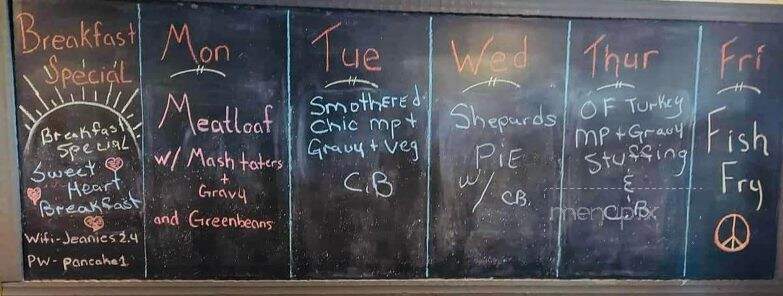 Breakfast
Special
Breakfast
Special
Sweet
Heart
Breakfast
Wifi-Jeanies 2.4
PW-pancake1
Mon
Meatloaf
w/ Mash taters
+
Gravy
and Greenbeans
Tue
Smothered
Chic mp+
Gravy + veg
C.B
Wed
Shepards
PiE
w/ CB.
Thur
OF Turkey
mp + Gravy
Stuffing
&
C.B.
Fri
Fish
Fry